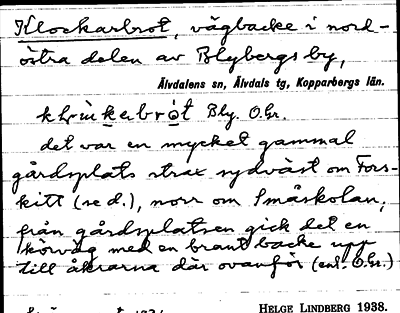 Klockarbrot, vägbacke i nord-
östra delen av Blybergs by,
Älvdalens sn, Älvdals tg, Kopparbergs län.
Bly. O.hr.
det var en mycket gammal
gårdsplats strax sydväst om Fors-
kitt (se d.), norr om Småskolan;
från gårdsplatsen gick det en
körväg med en brant backe upp
till åkrarna där ovanför (enl. O.hr.)
HELGE LINDBERG 1938.